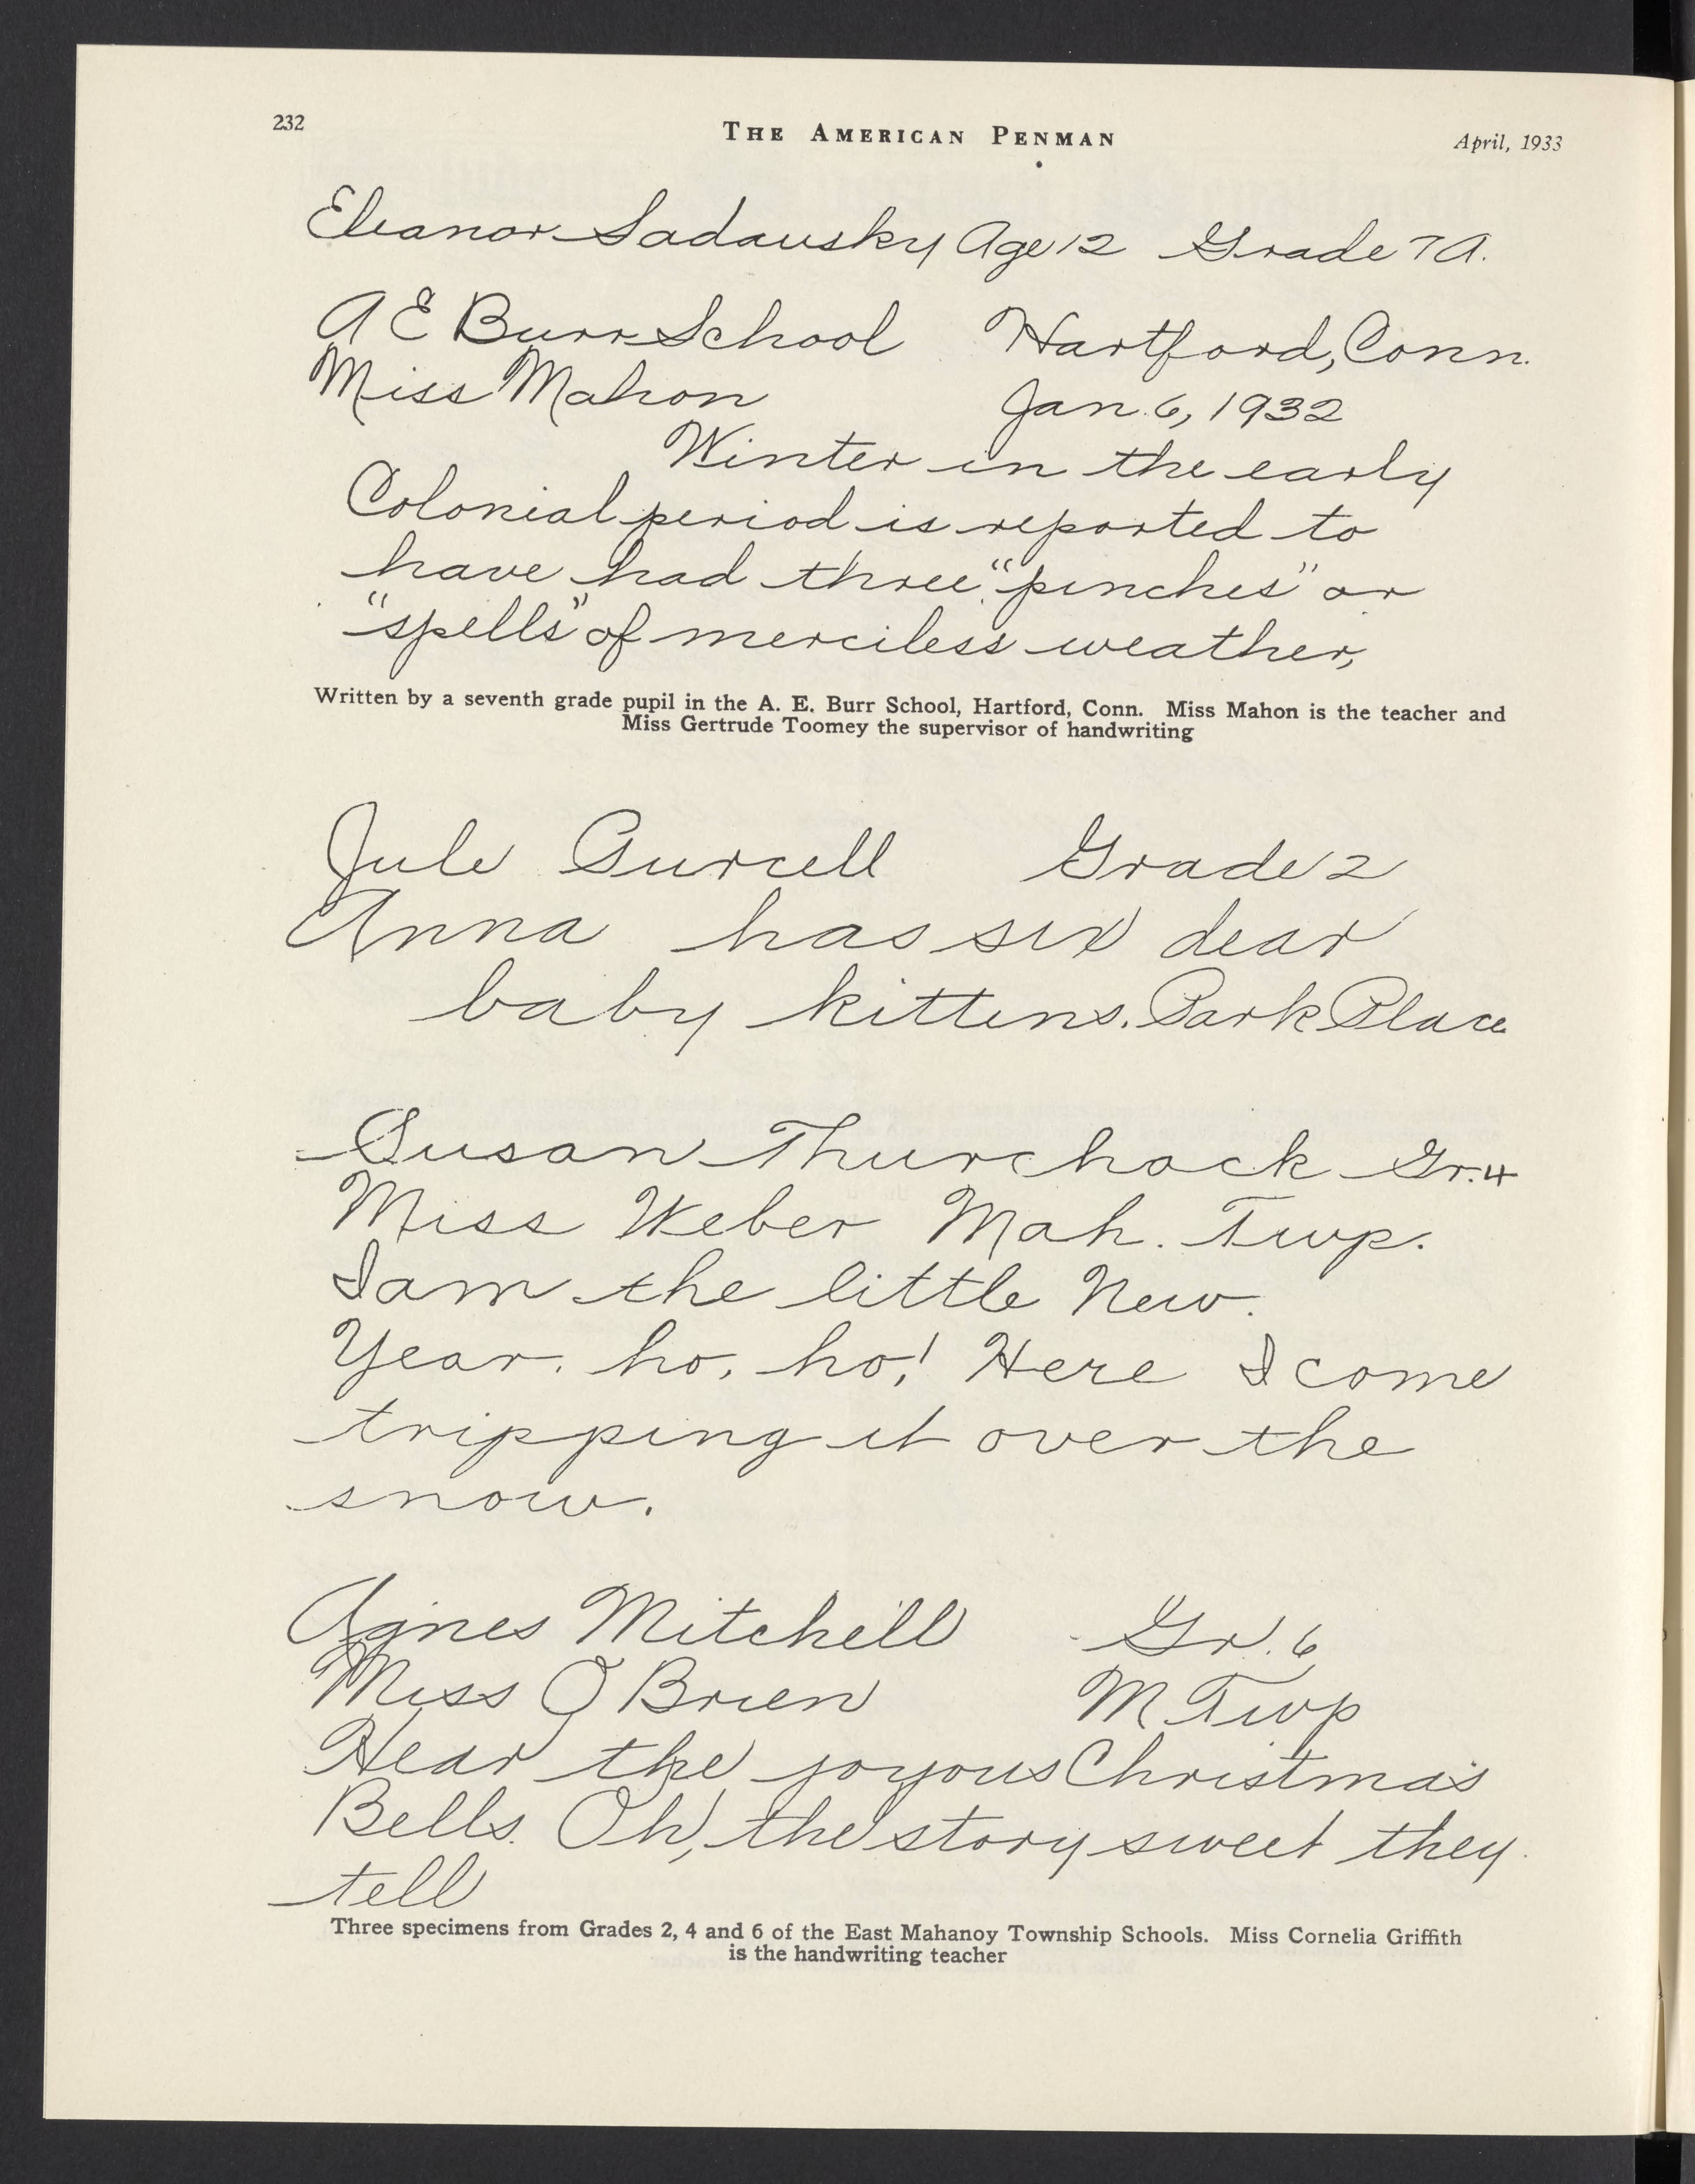 232
THE AMERICAN PENMAN
April, 1933
Eleanor Sadausky Age 12 Grade 7A.
A E Burr School Hartford, Conn.
Miss Mahon Jan. 6, 1932
Winter in the early
Colonial period is reported to
have had three "pinches" or
"spells" of merciless weather,
Written by a seventh grade pupil in the A. E. Burr School, Hartford, Conn. Miss Mahon is the teacher and
Miss Gertrude Toomey the supervisor of handwriting
Jule Purcell Grade 2
Anna has six dear
baby kittens. Park Place
Susan Thurchock Gr. 4
Miss Weber Mah. Twp.
I am the little New
Year, ho, ho! Here I come
tripping it over the
snow.
Agnes Mitchell Gr. 6
Miss O Brien M Twp
Hear the joyous Christmas
Bells. Oh, the story sweet they
tell
Three specimens from Grades 2, 4 and 6 of the East Mahanoy Township Schools. Miss Cornelia Griffith
is the handwriting teacher